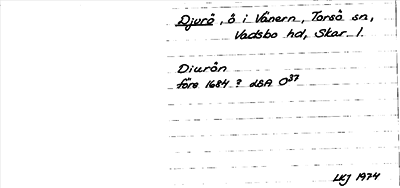 Djurö, ö i Vänern, Torsö sn,
Vadsbo hd, Skar. l.
Diurön
före 1684 ? LSA O37
LKJ 1974